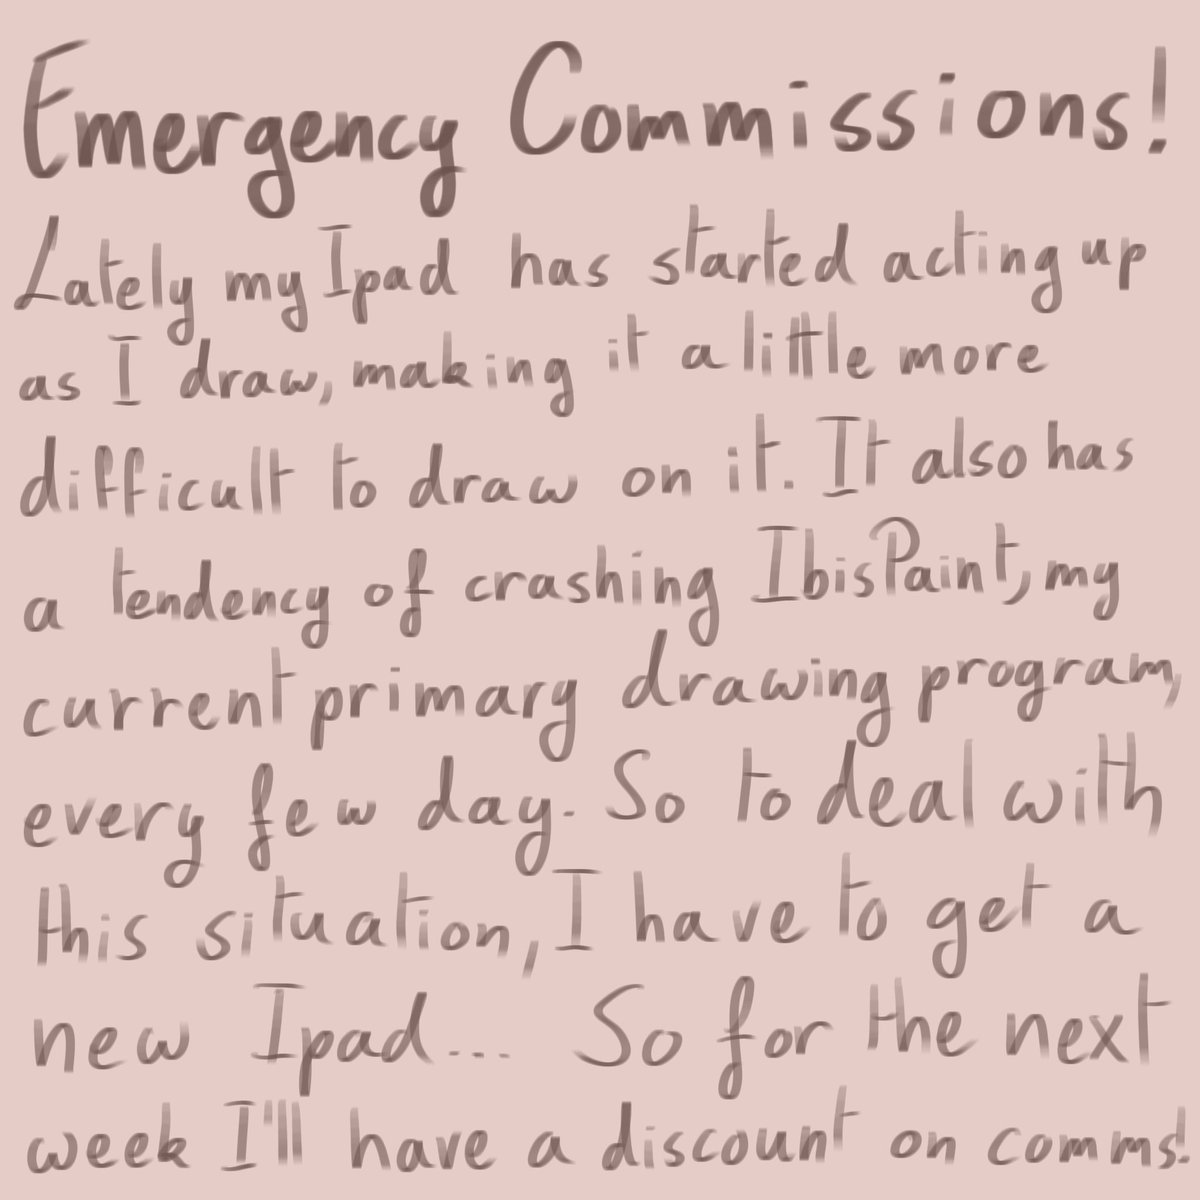 Emergency Commissions!
Lately my Ipad has started acting up
as I draw, making it a little more
difficult to draw on it. It also has
a tendency of crashing IbisPaint, my
current primary drawing program,
every few day. So to deal with
this situation, I have to get a
new Ipad... So for the next
week I'll have a discount on comms!